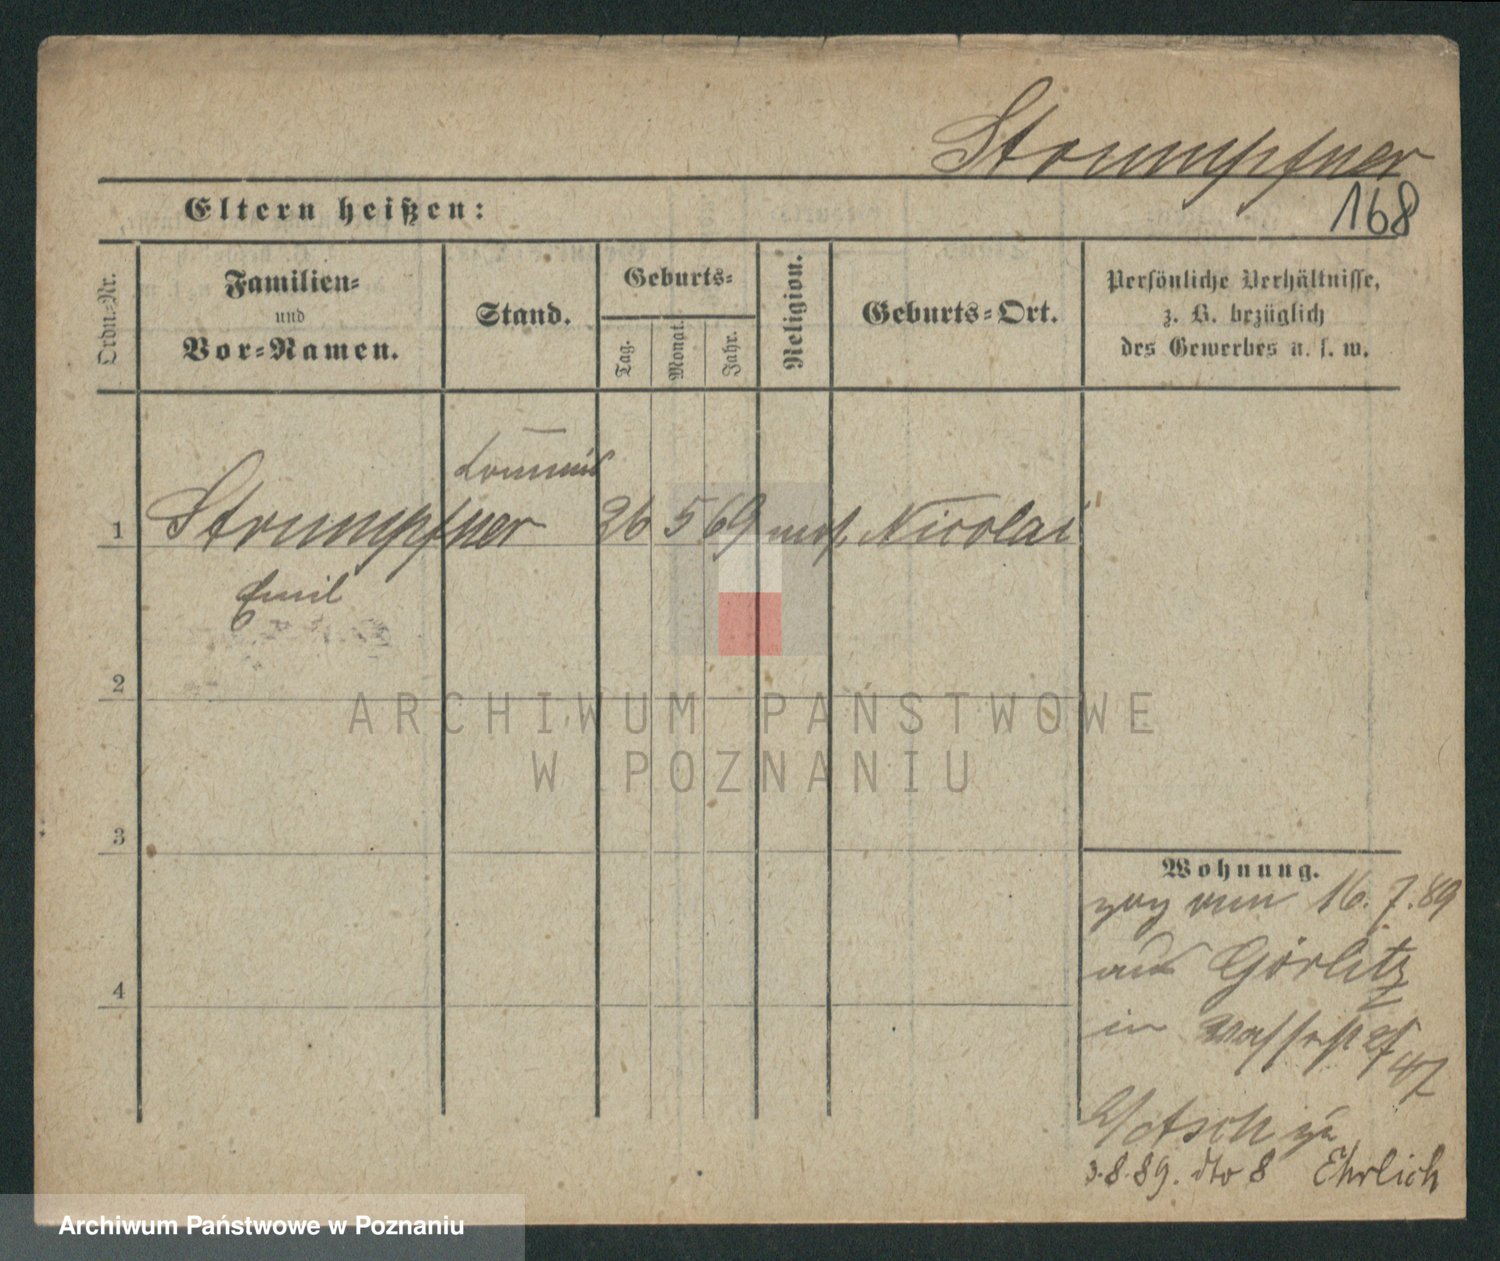 Strumpfner
168
Eltern heißen:
Ordn.-Nr.
Familien-
und
Vor-Namen.
Stand.
Geburts-
Tag.
Monat.
Jahr.
Religion.
Geburts-Ort.
Persönliche Verhältnisse,
z. B. bezüglich
des Gewerbes u. s. w.
1 Strumpfner 26 5 69 mos. Nicolai
Emil
2
3
4
Wohnung.
zog am 16. 7. 89
aus Görlitz
in
47
zu
3.8.89. dto 8 Ehrlich
ARCHIWUM PAŃSTWOWE
W POZNANIU
Archiwum Państwowe w Poznaniu